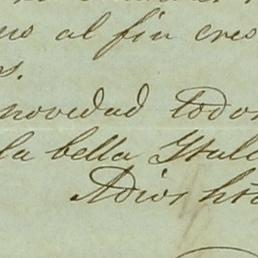 us al fin cres
s.
novedad todo
la bella Ytali
Adios hs